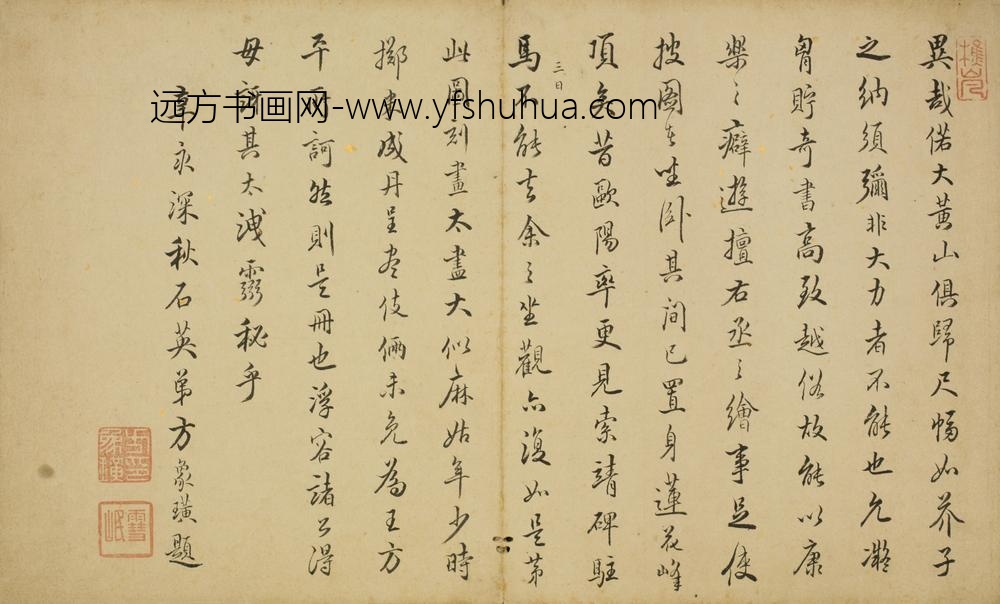 異哉偌大黃山俱歸尺幅如芥子
之納須彌非大力者不能也允凝
胷貯奇書高致越俗故能以康
樂之癖遊擅右丞之繪事足使
披圖者坐臥其間已置身蓮花峰
頂矣昔歐陽率更見索靖碑駐
馬三日不能去余之坐觀亦復如是第
此圖刻畫太盡大似麻姑年少時
擲米成丹呈盡伎倆未免為王方
平所訶然則是冊也浮容諸公得
毋訝其太洩靈秘乎
辛亥深秋石英弟方象璜題
远方书画网-www.yfshuhua.com
方象璜印
雪岷